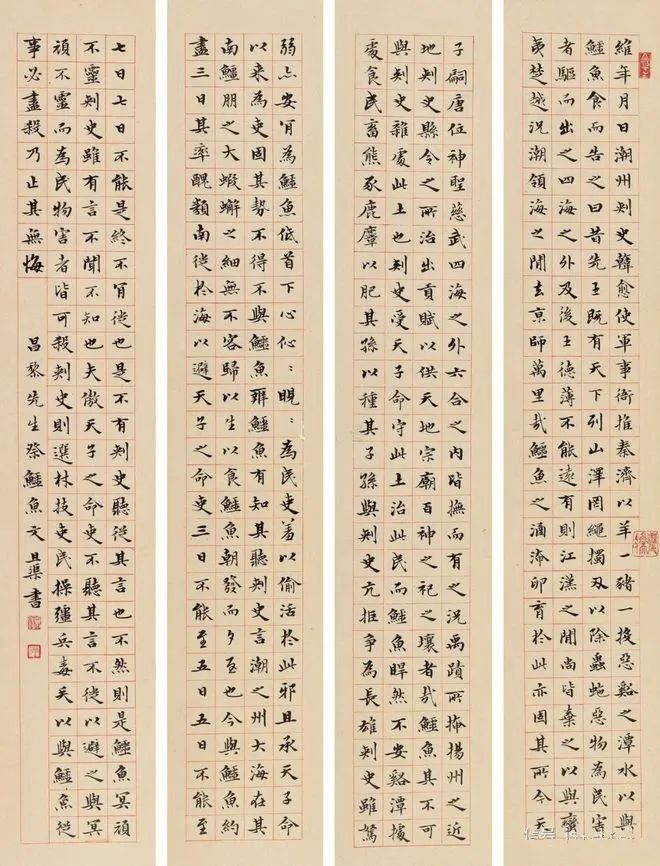 維年月日潮州刺史韓愈使軍事衙推秦濟以羊一豬一投惡谿之潭水以與
鱷魚食而告之曰昔先王既有天下列山澤罔繩擉刃以除蟲蛇惡物為民害
者驅而出之四海之外及後王德薄不能遠有則江漢之間尚皆棄之以與蠻
夷楚越況潮領海之間去京師萬里哉鱷魚之涵淹卵育於此亦固其所今天
子嗣唐位神聖慈武四海之外六合之內皆撫而有之況禹蹟所揜揚州之近
地刺史縣令之所治出貢賦以供天地宗廟百神之祀之壤者哉鱷魚其不可
與刺史雜處此土也刺史受天子命守此土治此民而鱷魚睅然不安谿潭據
處食民畜熊豕鹿麞以肥其孫以種其子孫與刺史亢拒爭為長雄刺史雖駑
弱亦安肯為鱷魚低首下心伈〻睍〻為民吏羞以偷活於此邪且承天子命
以來為吏固其勢不得不與鱷魚辨鱷魚有知其聽刺史言潮之州大海在其
南鱷朋之大蝦蠏之細無不容歸以生以食鱷魚朝發而夕至也今與鱷魚約
盡三日其率醜類南徙於海以避天子之命吏三日不能至五日五日不能至
七日七日不能是終不肯徙也是不有刺史聽從其言也不然則是鱷魚冥頑
不靈刺史雖有言不聞不知也夫傲天子之命吏不聽其言不徙以避之與冥
頑不靈而為民物害者皆可殺刺史則選材技吏民操彊兵毒矢以與鱷魚從
事必盡殺乃止其無悔
昌黎先生祭鱷魚文 且渠書